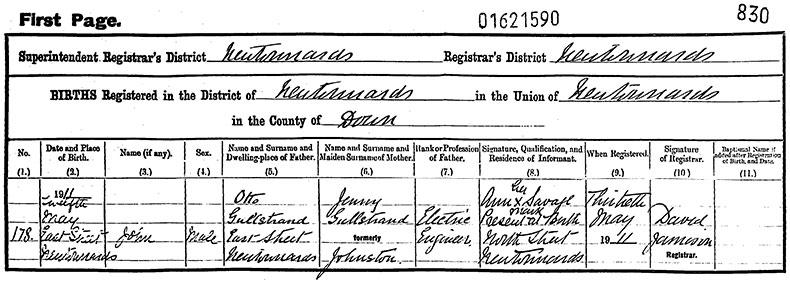 First Page. 01621590 830
Superintendent Registrar's District Newtownards Registrar's District Newtownards
BIRTHS Registered in the District of Newtownards in the Union of Newtownards
in the County of Down
No. Date and Place of Birth. Name (if any). Sex. Name and Surname and Dwelling-place of Father. Name and Surname and Maiden Surname of Mother. Rank or Profession of Father. Signature, Qualification, and Residence of Informant. When Registered. Signature of Registrar. Baptismal Name if added after Registration of Birth, and Date.
(1.) (2.) (3.) (4.) (5.) (6.) (7.) (8.) (9.) (10.) (11.)
178. 1911 Twelfth May East Street Newtownards
John
Male
Otto Gullstrand East Street Newtownards
Jenny Gullstrand formerly Johnston
Electric Engineer
Ann X Savage Her Mark Present at Birth North Street Newtownards
Thirtieth May 1911
David Jameson Registrar.